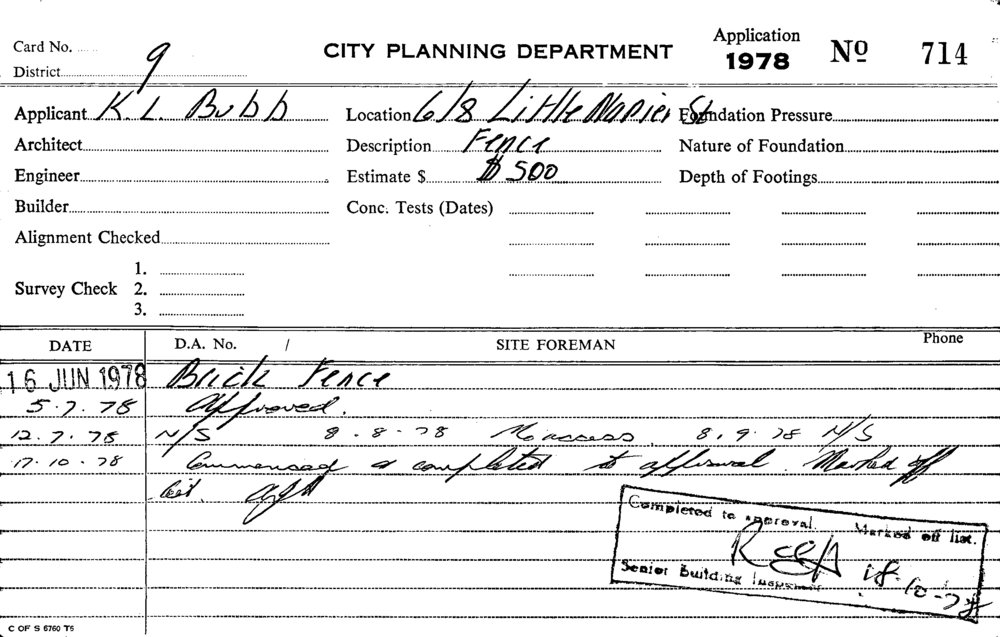 Card No.
CITY PLANNING DEPARTMENT
Application 1978 No 714
District 9
Applicant K. L. Bubb
Location 6/8 Little Napier St
Foundation Pressure
Architect
Description Fence
Nature of Foundation
Engineer
Estimate $ $500
Depth of Footings
Builder
Conc. Tests (Dates)
Alignment Checked
Survey Check 1.
2.
3.
DATE D.A. No. / SITE FOREMAN Phone
16 JUN 1978 Brick Fence
5.7.78 Approved.
12.7.78 N/S 8.8.78 No access. 8.9.78 N/S
17.10.78 Commenced & completed to approval. Marked off
list.
Completed to approval. Marked off list.
18-10-78
Senior Building Inspector
C OF S 6760 T5